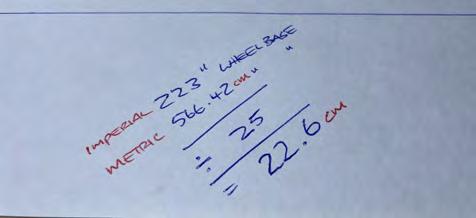 IMPERIAL 223" WHEELBASE
METRIC 566.42 cm " "
÷ 25
= 22.6 cm